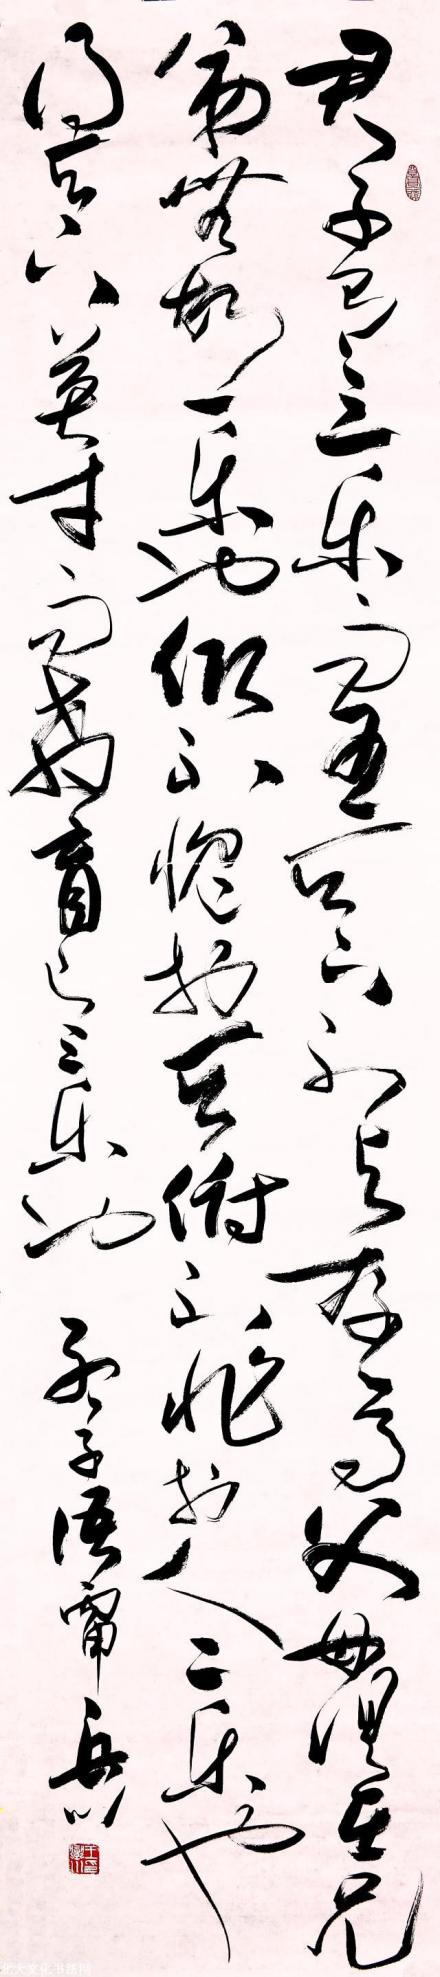 君子有三乐而王天下不与存焉父母俱存兄
弟無故一乐也仰不愧於天俯不怍於人二乐也
得天下英才而教育之三乐也 孟子语